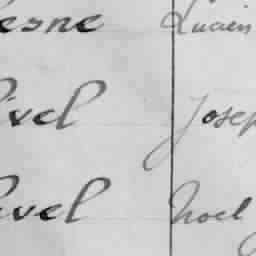 esne Lucien
ivel Josep
avel Noel